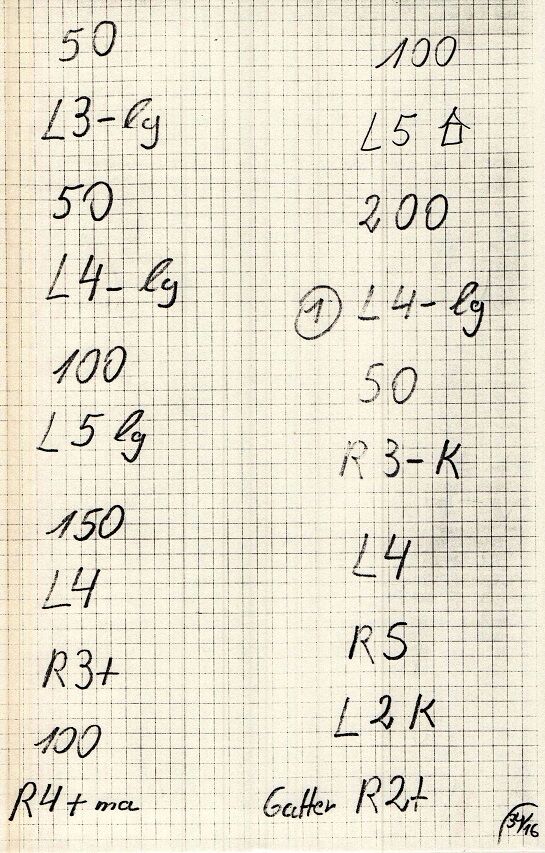 50
L3- lg
50
L4- lg
100
L5 lg
150
L4
R3+
100
R4+ ma
100
L5
200
① L4- lg
50
R3- K
L4
R5
L2 K
Gatter R2+
34/16